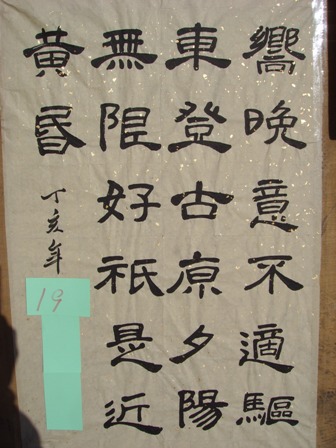 嚮晚意不適驅
車登古原夕陽
無限好祇是近
黃昏
丁亥年
19